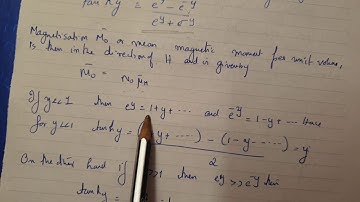 tan hy = e^y - e^-y / e^y + e^-y
Magnetisation M̄o or mean magnetic moment per unit volume,
is then in the direction of H and is given by
M̄o = no μ̄n
If y<<1 then e^y = 1+y+ ---- and e^-y = 1-y+ --- Hence
for y<<1 tan hy = (1+y+ ----) - (1-y- ----) / 2 = y
On the other hand if y>>1 then e^y >> e^-y then
tan hy =